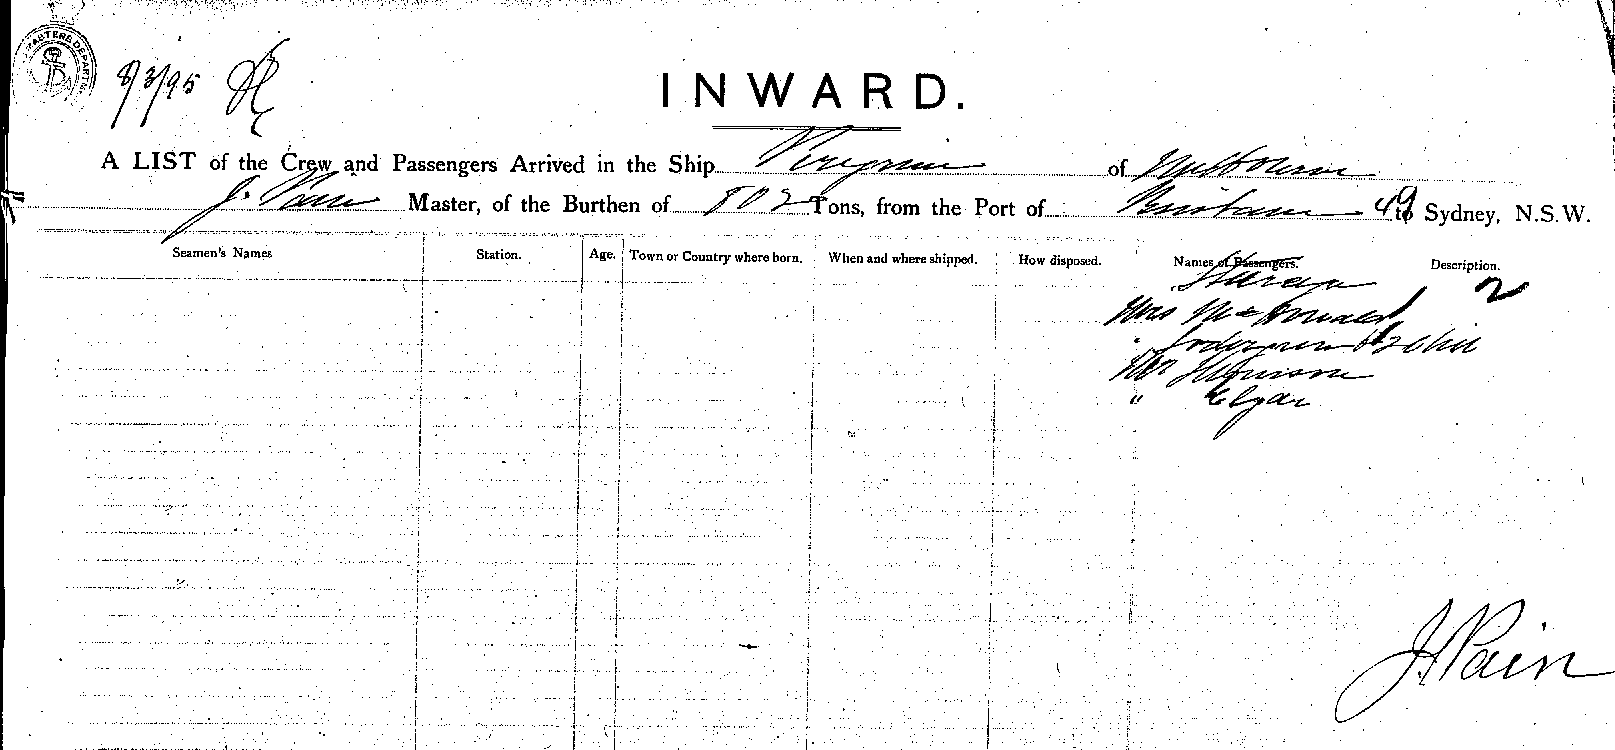 8/3/95
INWARD.
A LIST of the Crew and Passengers Arrived in the Ship Peregrine of Melbourne
J. Pain Master, of the Burthen of 802 Tons, from the Port of Brisbane 49 to Sydney, N.S.W.
Seamen's Names Station. Age. Town or Country where born. When and where shipped. How disposed. Names of Passengers. Description.
2
Mrs McDonald
Mr
" Elgar
J Pain